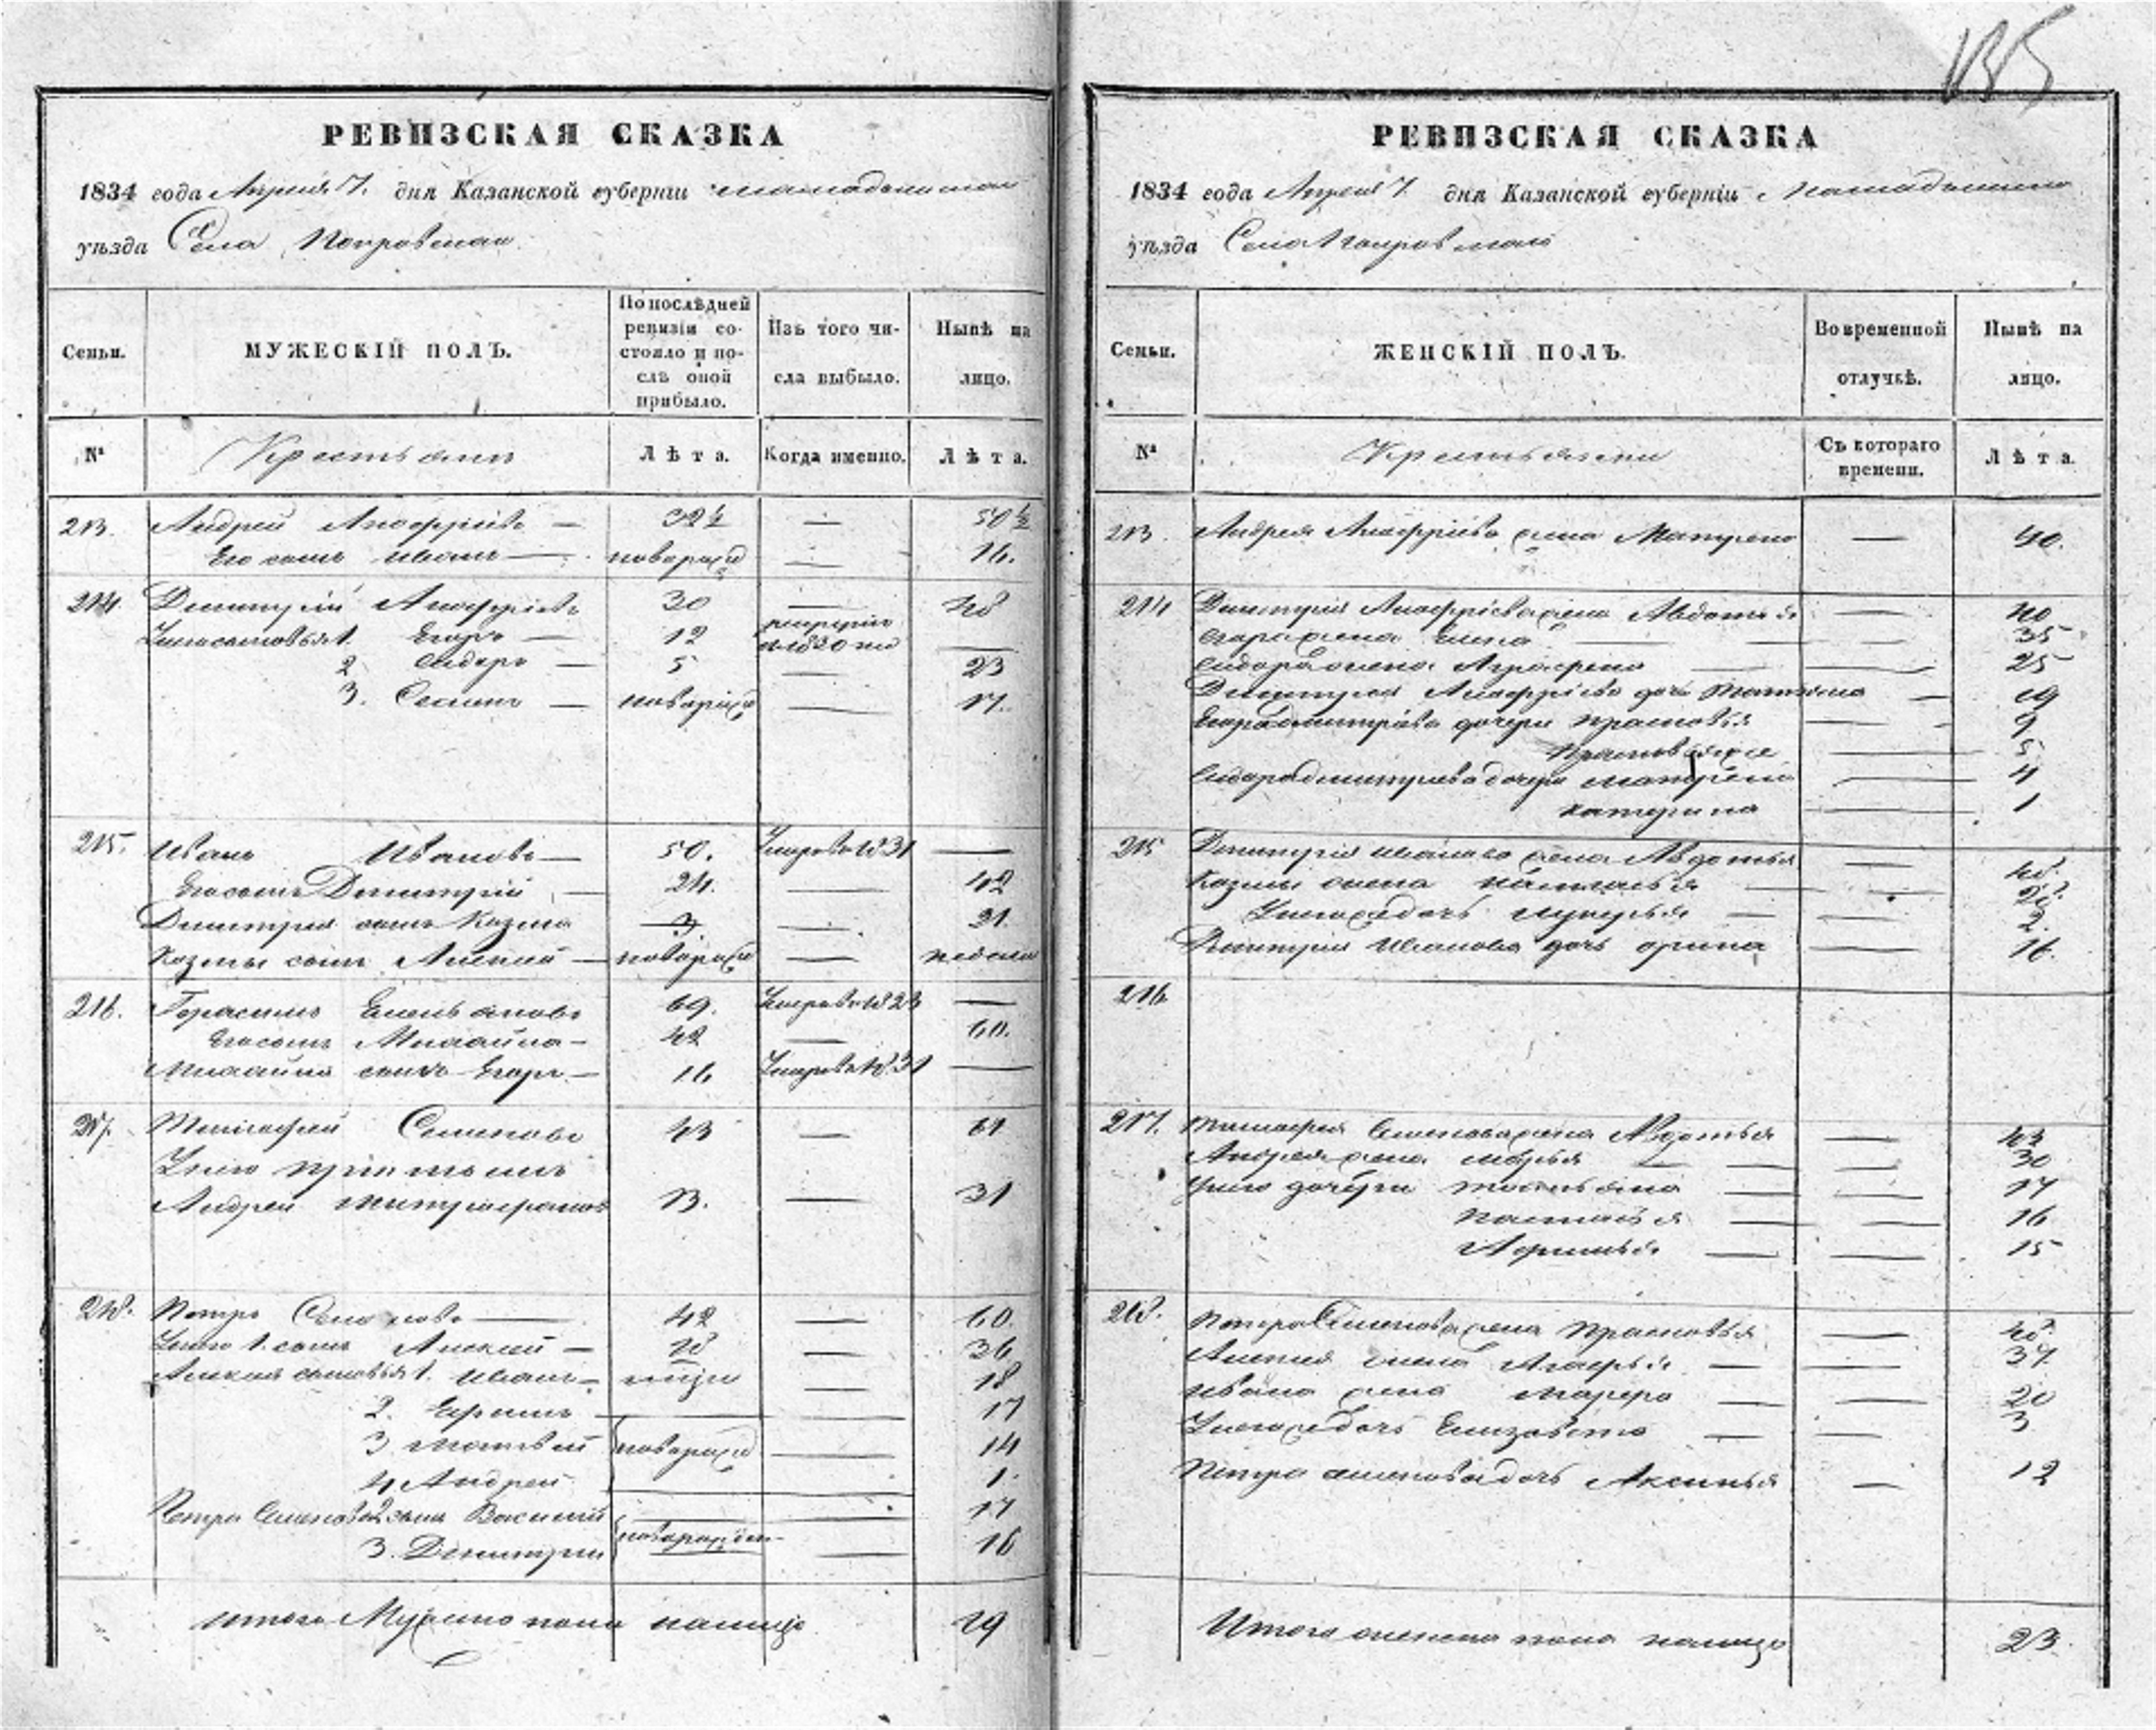 135
РЕВИЗСКАЯ СКАЗКА
1834 года Апреля 7. дня Казанской губерніи
уѣзда Села Покровскаго
Семьи.
МУЖЕСКІЙ ПОЛЪ.
По послѣдней ревизіи со-
стояло и по-
слѣ оной
прибыло.
Изъ того чи-
сла выбыло.
Нынѣ на
лицо.
№
Крестьяне
Лѣта.
Когда именно.
Лѣта.
213. Андрей — 32½ — 50½
Его сынъ Иванъ — новорожд — 16.
214. Димитрій 30 — 48
1. Егоръ — 12 —
2. Сидоръ — 5 — 23
3. Семенъ — новорожд — 17.
215. Иванъ Ивановъ — 50. —
Его сынъ Димитрій — 24. — 42
Димитрія сынъ Козма 3 — 21.
Козмы сынъ Алексей — новорожд — недели
216. Герасимъ Емельяновъ 69. —
Его сынъ Михайла — 42 — 60.
Михайла сынъ Егоръ — 16 —
217. Тимофей Семеновъ 43 — 61
У него
Андрей 13. — 31
218. Петръ Семеновъ — 42 — 60.
У него 1. сынъ Алексей — 18 — 36
Алексея сыновья 1. Иванъ — — 18
2. Ефимъ — 17
3. Матвей новорожд — 14
4. Андрей 1.
Петра Семенова 2 сынъ Василий — 17
3. Димитрий новорожден — 16
Итого Мужеска пола налицо 29
РЕВИЗСКАЯ СКАЗКА
1834 года Апреля 7. дня Казанской губерніи
уѣзда Села Покровскаго
Семьи.
ЖЕНСКІЙ ПОЛЪ.
Во временной
отлучкѣ.
Нынѣ на
лицо.
№
Крестьянки
Съ котораго
времени.
Лѣта.
213. Андрея жена Матрена — 40.
214 Димитрія жена Авдотья — 40
Егора жена Елена — 35
Сидора жена Аграфена — 25
Димитрія дочь Татьяна — 19
Егора Димитріева дочери Прасковья — 9
Прасковья же — 5
Сидора Димитриева дочери Матрена — 4
Катерина — 1
215 Димитрія Иванова жена Авдотья — 48.
Козмы жена Наталья — 28.
У него же дочь Лукерья — 2.
Димитрія Иванова дочь Орина — 16.
216
217. Тимофея Семенова жена Авдотья — 43
Андрея жена Марья — 30
У него дочери Татьяна — 17
Настасья — 16
Афимья — 15
218. Петра Семенова жена Прасковья — 48.
Алексея жена Агафья — 37.
Ивана жена Марфа — 20
У него же дочь Елизавета — 3
Петра Семенова дочь Аксинья — 12
Итого женска пола налицо 23.